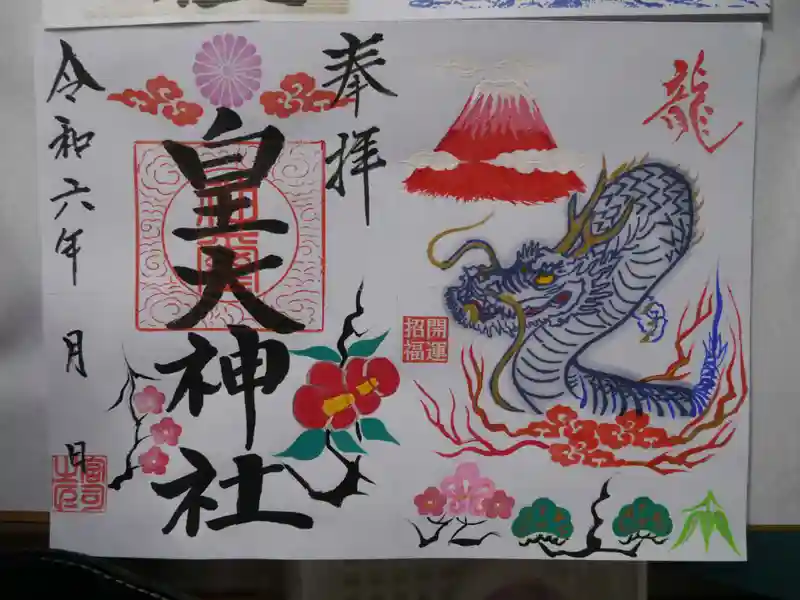 奉拝
皇大神社
令和六年 月 日
龍
開運
招福
宮司
之印